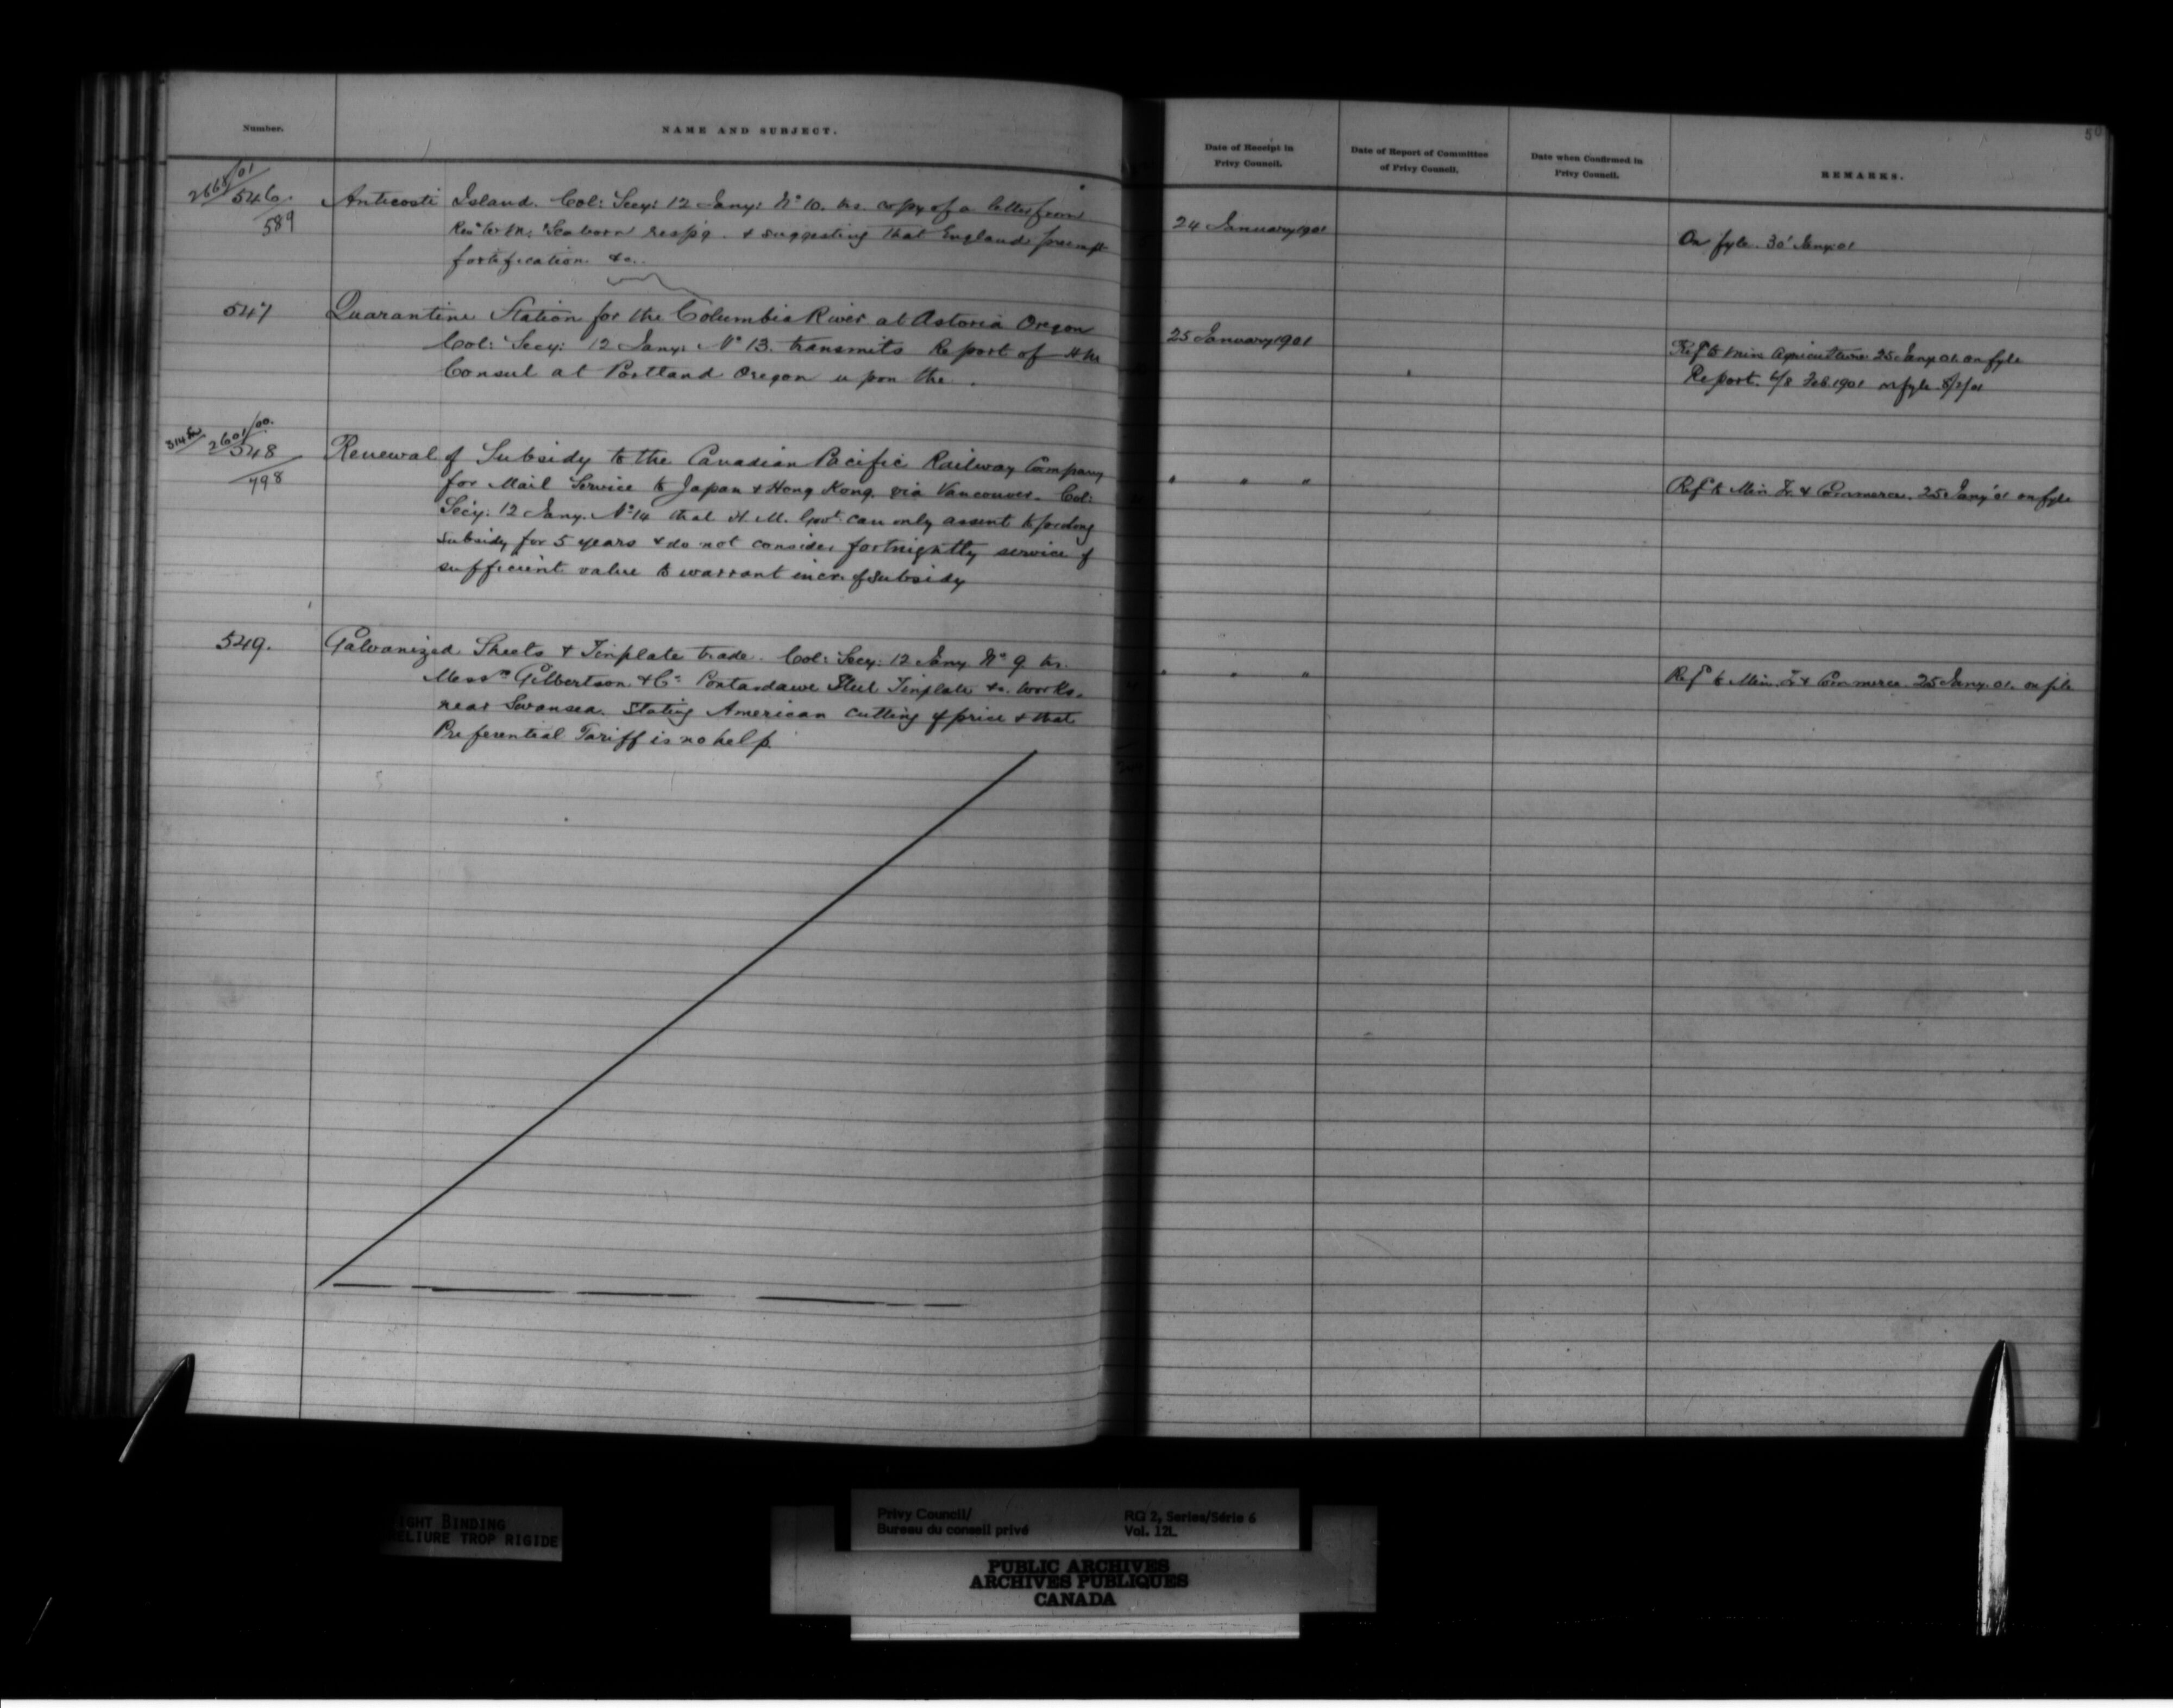 50
Number.
NAME AND SUBJECT.
Date of Receipt in
Privy Council.
Date of Report of Committee
of Privy Council.
Date when Confirmed in
Privy Council.
REMARKS.
2668/01
546.
589
Anticosti Island. Col: Secy: 12 Jany: No 10. trs. copy of a letter from
Seaborn respg. & suggesting that England preempt
fortification &c.
24 January 1901
On fyle. 30' Jany 01
547
Quarantine Station for the Columbia River at Astoria Oregon
Col: Secy: 12 Jany: No 13. transmits Report of HM
Consul at Portland Oregon upon the.
25 January 1901
Refd to Min Agriculture 25 Jany 01 on fyle
Report. 6/8 Feb 1901 on fyle 8/2/01
2601/00.
548
798
Renewal of Subsidy to the Canadian Pacific Railway Company
for Mail Service to Japan & Hong Kong via Vancouver. Col:
Secy: 12 Jany. No 14 that H. M. Govt can only assent to
subsidy for 5 years & do not consider fortnightly service of
sufficient value to warrant incr. of subsidy
" " "
Refd to Min. T. & Commerce. 25 Jany '01 on fyle
549.
Galvanized Sheets & Tinplate trade. Col: Secy: 12 Jany No 9 trs.
Messrs Gilbertson & Co Pontardawe Steel Tinplate &c. works.
near Swansea. Stating American cutting of price & that
Preferential Tariff is no help.
" " "
Refd to Min. T & Commerce. 25 Jany. 01. on file
IGHT BINDING
RELIURE TROP RIGIDE
Privy Council/
Bureau du conseil privé
RG 2, Series/Série 6
Vol. 121
PUBLIC ARCHIVES
ARCHIVES PUBLIQUES
CANADA